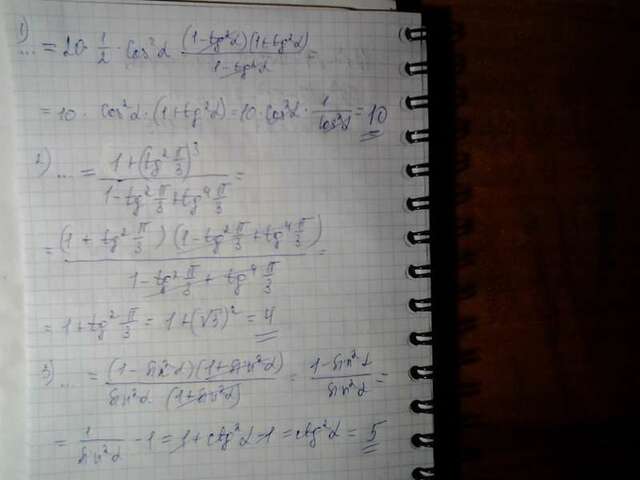 1) ... = 20 · 1/2 · cos²α · (1-tg²α)(1+tg²α)/(1-tg²α) =
= 10 · cos²α · (1+tg²α) = 10 · cos²α · 1/cos²α = 10
2) ... = (1+(tg² π/3)³)/(1-tg² π/3 + tg⁴ π/3) =
= (1+tg² π/3)(1-tg² π/3 + tg⁴ π/3)/(1-tg² π/3 + tg⁴ π/3) =
= 1+tg² π/3 = 1+(√3)² = 4
3) ... = (1-sin²α)(1+sin²α)/(sin²α (1+sin²α)) = (1-sin²α)/(sin²α) =
= 1/sin²α - 1 = 1+ctg²α-1 = ctg²α = 5